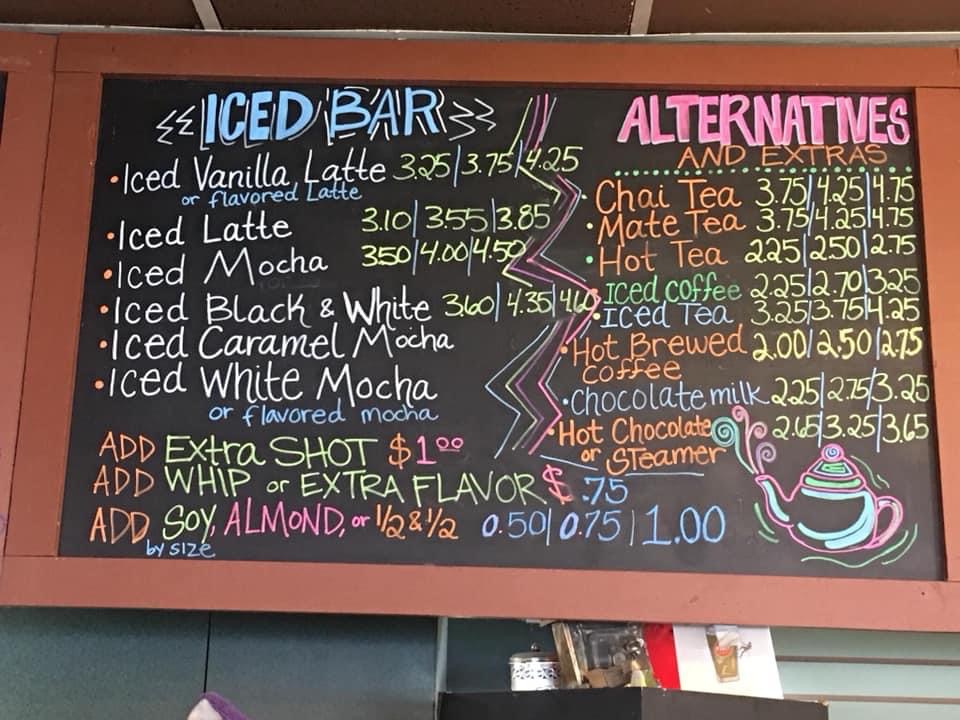 ICED BAR
•Iced Vanilla Latte 3.25|3.75|4.25
or flavored Latte
•Iced Latte 3.10|3.55|3.85
•Iced Mocha 350|4.00|4.50
•Iced Black & White 3.60|4.35|460
•Iced Caramel Mocha
•Iced White Mocha
or flavored mocha
ADD Extra SHOT $1.00
ADD WHIP or EXTRA FLAVOR $.75
ADD SOY, ALMOND, or 1/2 & 1/2 0.50|0.75|1.00
by size
ALTERNATIVES
AND EXTRAS
•Chai Tea 3.75|4.25|4.75
•Mate Tea 3.75|4.25|4.75
•Hot Tea 2.25|2.50|2.75
•Iced coffee 2.25|2.70|3.25
•Iced Tea 3.25|3.75|4.25
•Hot Brewed 2.00|2.50|2.75
coffee
•Chocolate milk 2.25|2.75|3.25
•Hot Chocolate 2.65|3.25|3.65
or STeamer